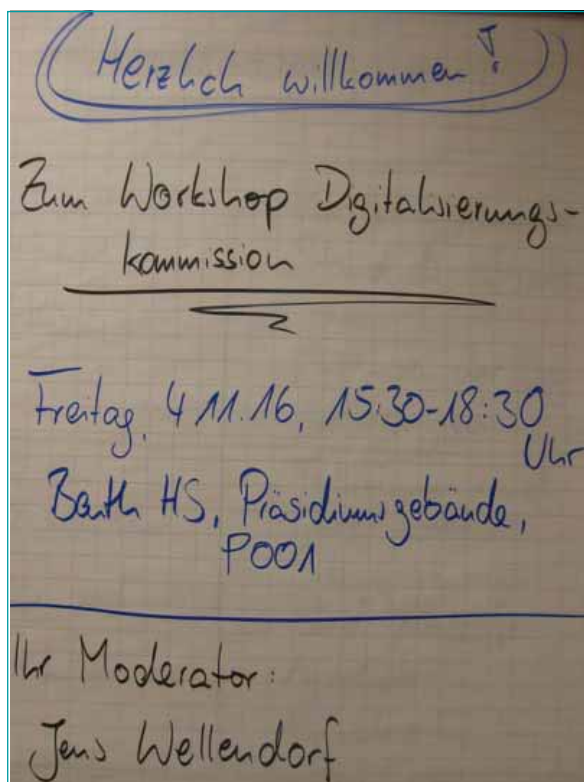 Herzlich willkommen!
Zum Workshop Digitalisierungs-
kommission
Freitag, 4.11.16, 15:30-18:30
Uhr
Beuth HS, Präsidiumsgebäude,
P001
Ihr Moderator:
Jens Wellendorf